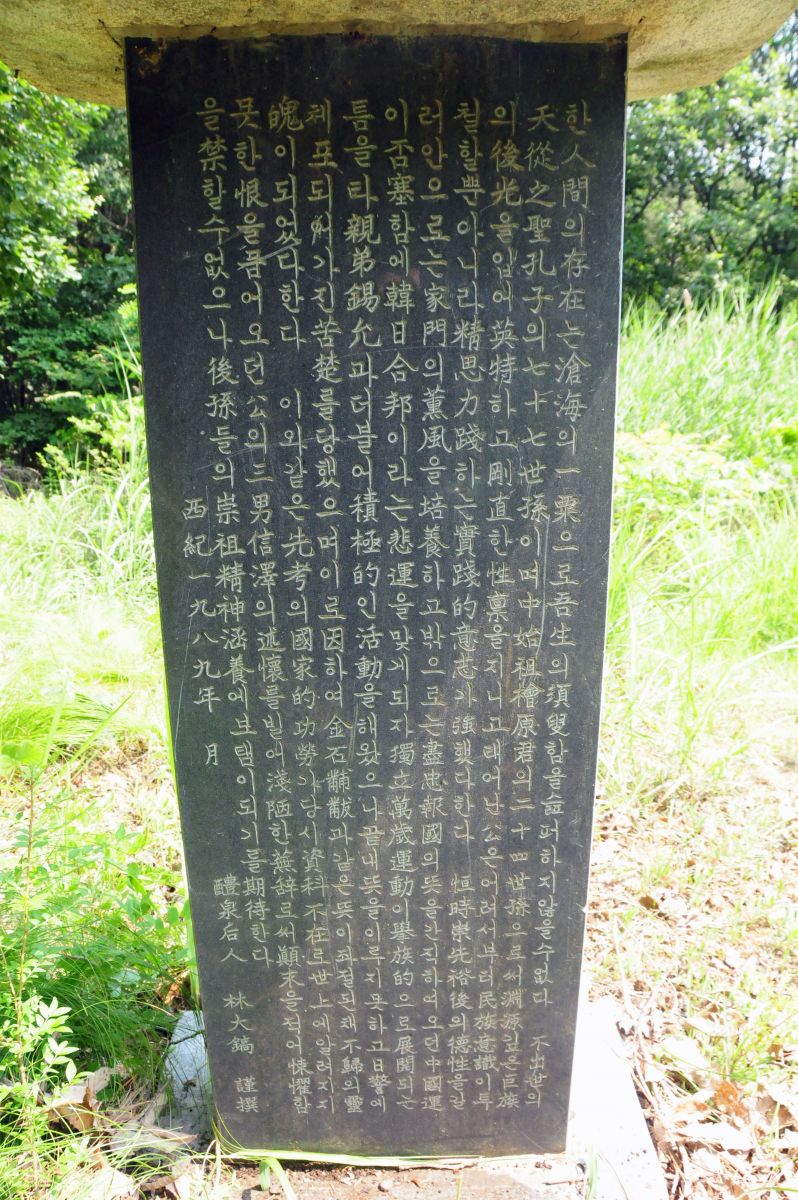 한人間의存在는滄海의一粟으로吾生의須臾함을슬퍼하지않을수없다 不出世의
天從之聖孔子의七十七世孫이며中始祖檜原君의二十四世孫으로써淵源깊은巨族
의後光을입어英特하고剛直한性稟을지니고태어난公은어려서부터民族意識이투
철할뿐아니라精思力踐하는實踐的意志가強했다한다 恒時崇先裕後의德性을길
러안으로는家門의薰風을培養하고밖으로는盡忠報國의뜻을간직하여오던中國運
이否塞함에韓日合邦이라는悲運을맞게되자獨立萬歲運動이擧族的으로展開되는
틈을타親弟錫允과더불어積極的인活動을해왔으나끝내뜻을이루지못하고日警에
체포되어가진苦楚를당했으며이로因하여金石黼黻과같은뜻이좌절된채不歸의靈
魄이되었다한다 이와같은先考의國家的功勞가당시資料不在로世上에알려지지
못한恨을품어오던公의三男信澤의述懷를빌어淺陋한蕪辞로써顛末을적어悚懼함
을禁할수없으나後孫들의崇祖精神涵養에보탬이되기를期待한다
西紀一九八九年 月 醴泉后人 林大鎬 謹撰